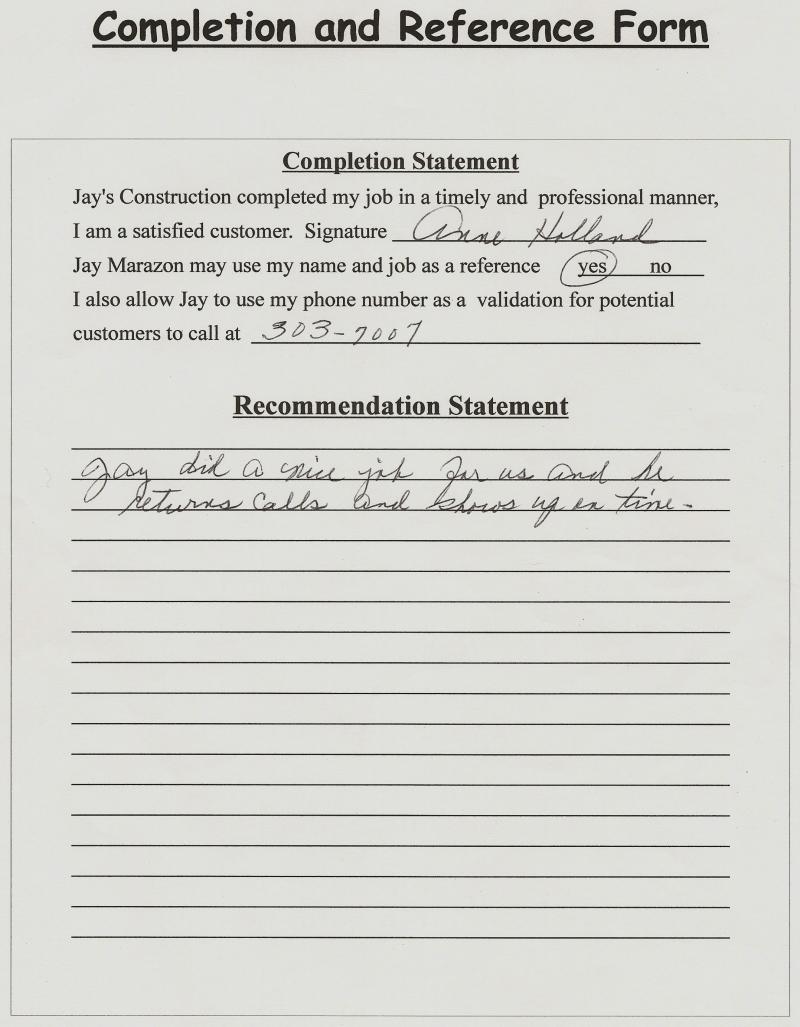 Completion and Reference Form
Completion Statement
Jay's Construction completed my job in a timely and professional manner,
I am a satisfied customer. Signature Anne Holland
Jay Marazon may use my name and job as a reference yes no
I also allow Jay to use my phone number as a validation for potential
customers to call at 303-7007
Recommendation Statement
Jay did a nice job for us and he
returns calls and shows up on time-